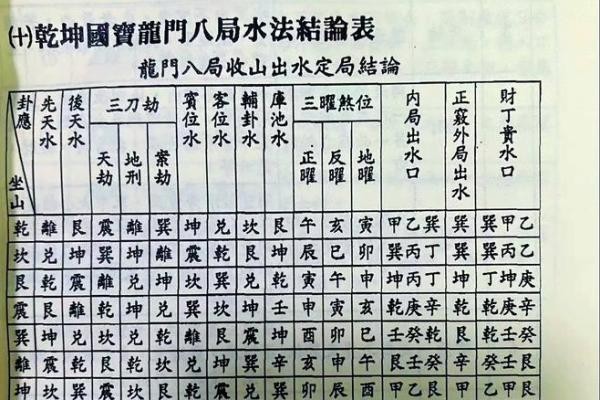 ㈩乾坤國寶龍門八局水法結論表
龍門八局收山出水定局結論
卦應 坐山 先天水 後天水 三刀劫 天劫 地刑 案劫 賓位水 客位水 輔卦水 庫池水 三曜煞位 正曜 反曜 地曜 內局出水口 正竅外局出水 財丁貴水口
乾 離 艮 震 離 巽 坤 兌 坎 艮 午 亥 寅 甲乙巽 巽 巽甲乙
坎 兌 坤 巽 震 乾 離 震 乾 坤 辰 巳 卯 巽丙丁 巽 巽丙丁
艮 乾 震 離 兌 坤 坎 巽 兌 乾 寅 申 申 坤丙丁 坤 丁坤庚
震 艮 離 乾 坤 兌 巽 坎 坤 壬 申 寅 亥 乾庚辛 乾 乾庚辛
巽 坤 兌 坎 兌 乾 離 震 坤 酉 卯 巳 壬癸乾 艮 乾壬癸
離 震 乾 艮 乾 坤 兌 坤 巽 辛 亥 申 午 艮壬癸 乾 艮壬癸
坤 坎 巽 震 坎 艮 乾 艮 兌 巽 卯 辰 酉 甲乙艮 甲 甲乙艮